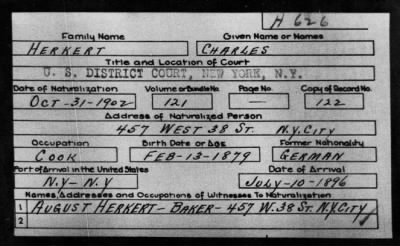 H 626
Family Name Given Name or Names
HERKERT CHARLES
Title and Location of Court
U. S. DISTRICT COURT, NEW YORK, N.Y.
Date of Naturalization Volume or Bundle No. Page No. Copy of Record No.
OCT-31-1902 121 — 122
Address of Naturalized Person
457 WEST 38 ST. N.Y. CITY
Occupation Birth Date or Age Former Nationality
COOK FEB-13-1879 GERMAN
Port of Arrival in the United States Date of Arrival
N.Y-N.Y JULY-10-1896
Names, Addresses and Occupations of Witnesses To Naturalization
1 AUGUST HERKERT-BAKER-457 W. 38 ST. N.Y. CITY
2